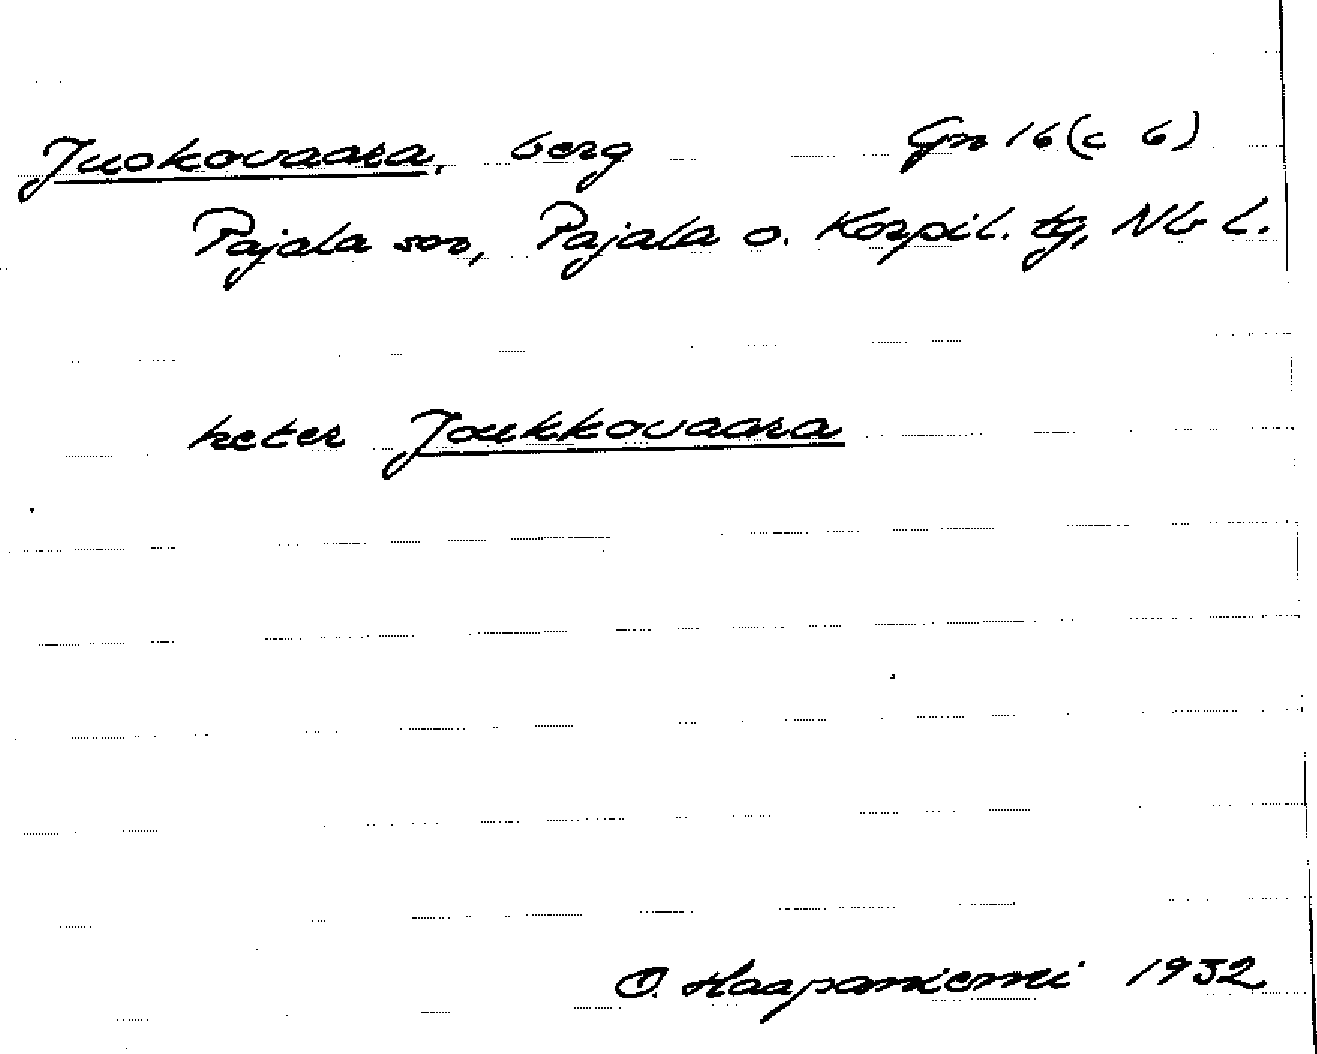 Juokovaara, berg Gn 16 (c 6)
Pajala sn, Pajala o. Korpil. tg, Nb L.
heter Joukkovaara
O. Haapaniemi 1932